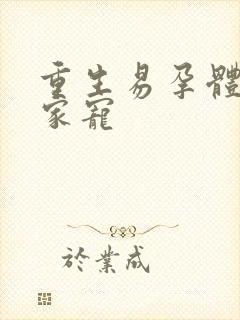 重生易孕體
家寵
於業成